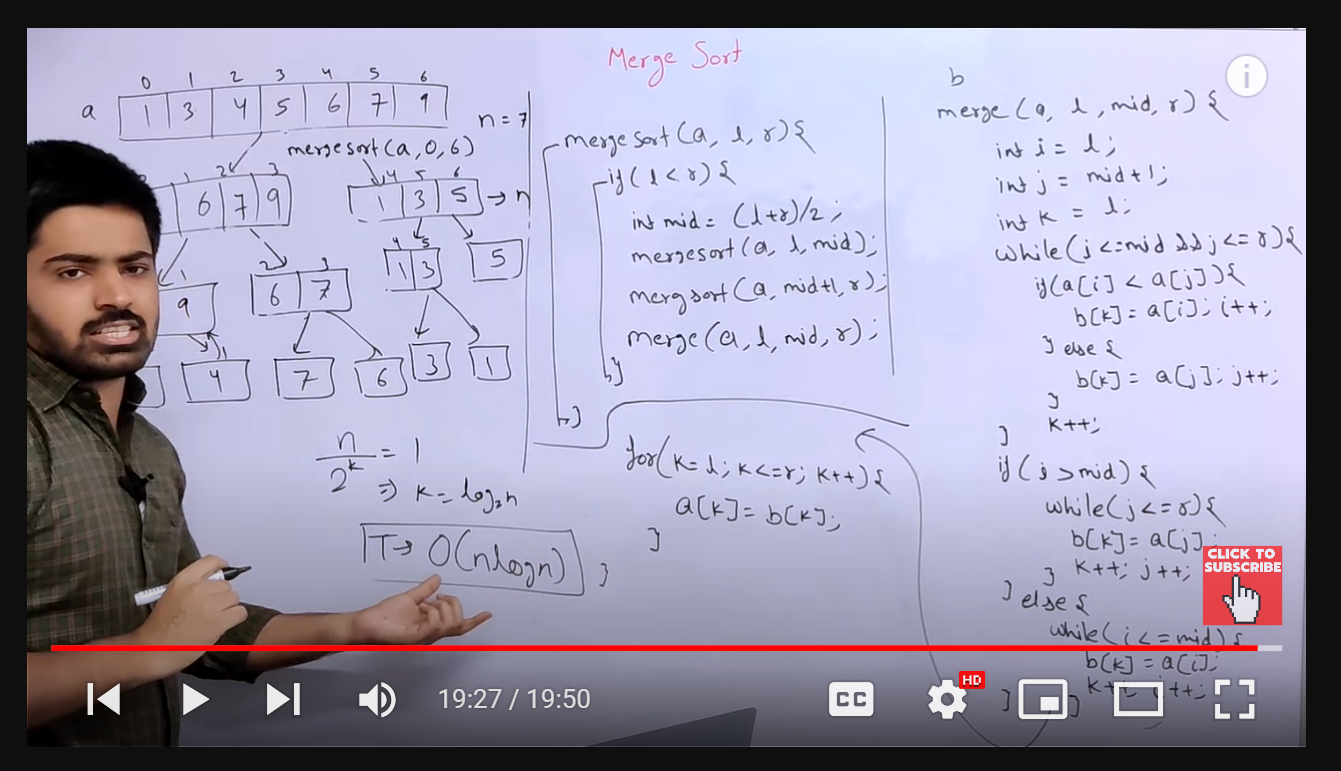 Merge Sort
a
0 1 2 3 4 5 6
1 3 4 5 6 7 9
n = 7
mergesort(a, 0, 6)
1 2 3
6 7 9
4 5 6
1 3 5 → n
1
9
2 3
6 7
4 5
1 3
5
1
4
7
6
3
1
n/2^k = 1
⇒ k = log₂n
T→ O(nlogn)
mergesort(a, l, r){
if(l<r){
int mid = (l+r)/2;
mergesort(a, l, mid);
mergsort(a, mid+1, r);
merge(a, l, mid, r);
}
}
for(k=l; k<=r; k++){
a[k] = b[k];
}
}
b
merge(a, l, mid, r){
int i = l;
int j = mid+1;
int k = l;
while(i<=mid && j<=r){
if(a[i] < a[j]){
b[k] = a[i]; i++;
} else {
b[k] = a[j]; j++;
}
k++;
}
if(i>mid){
while(j<=r){
b[k]=a[j];
k++; j++;
}
} else {
while(i<=mid){
b[k]=a[i];
k++; i++;
}
}
i
CLICK TO
SUBSCRIBE
19:27 / 19:50
CC
HD